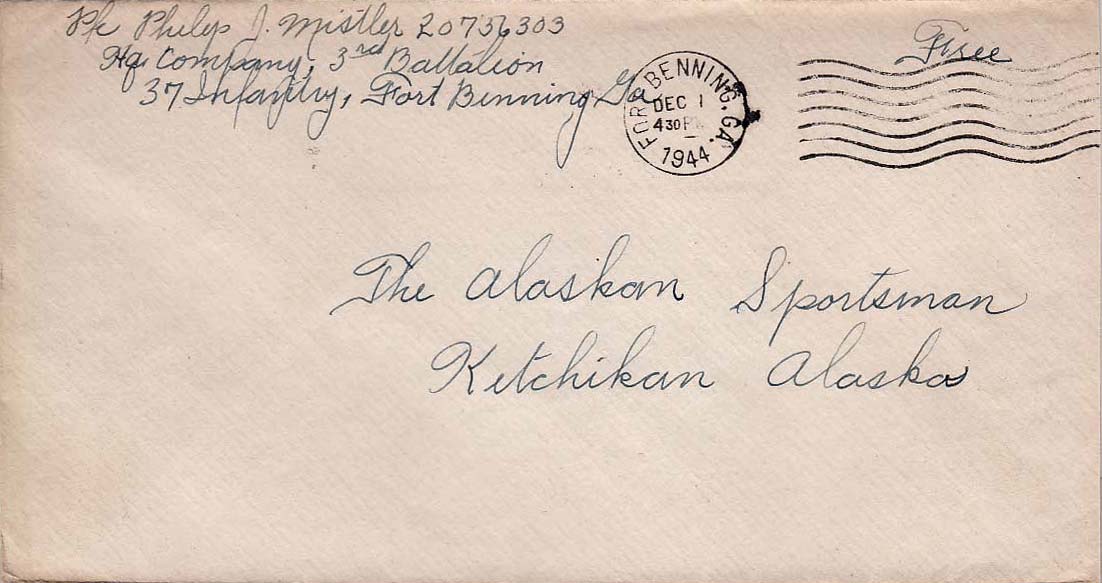 Pfc Philip J. Mistler 20736303
Hq. Company, 3rd Battalion
37 Infantry, Fort Benning Ga
Free
FORT BENNING, GA.
DEC 1
4 30 PM
1944
The Alaskan Sportsman
Ketchikan Alaska